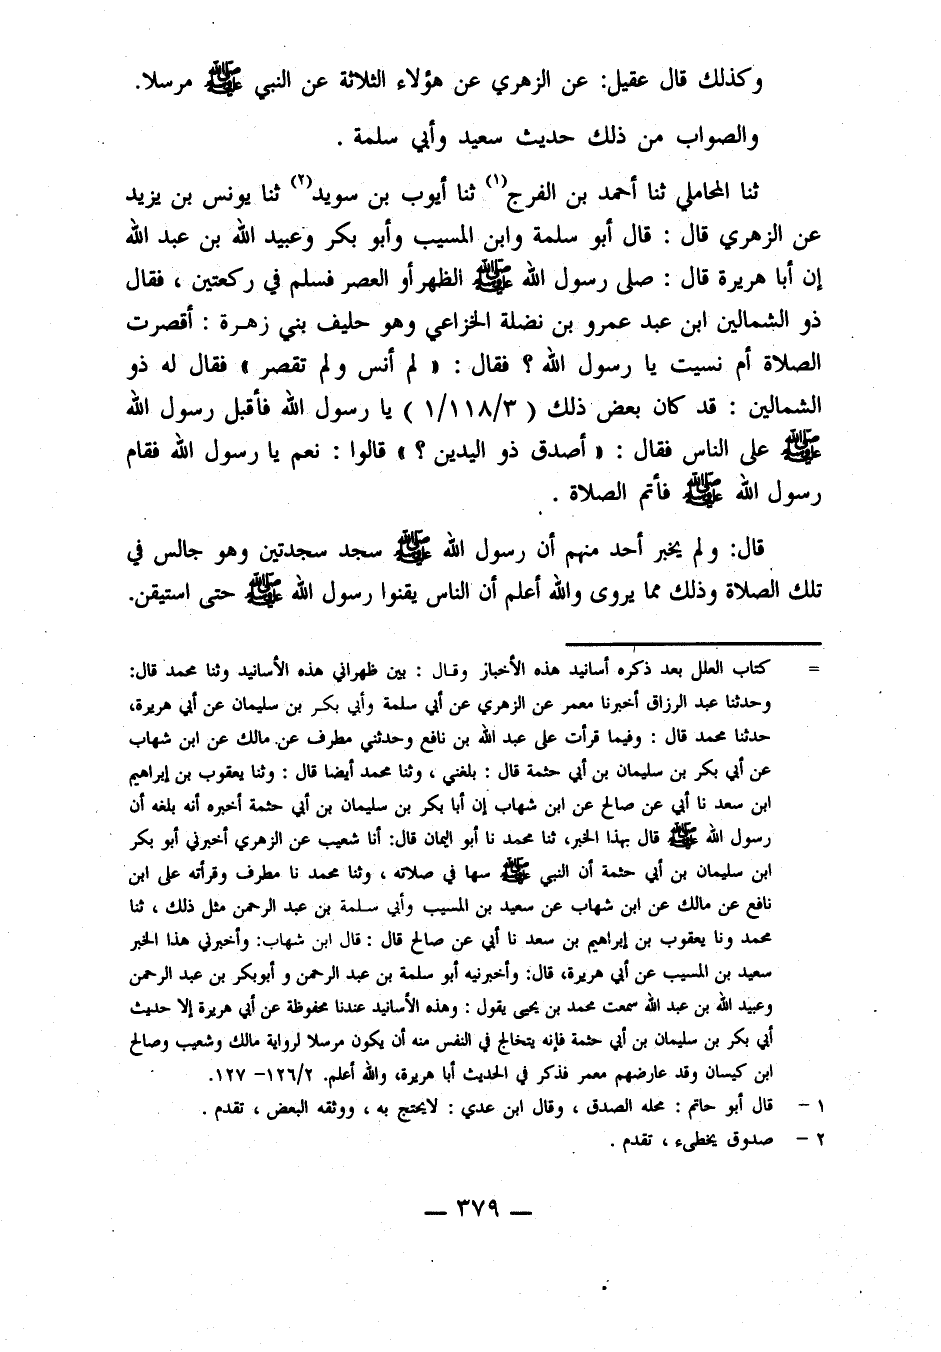 وكذلك قال عقيل: عن الزهري عن هؤلاء الثلاثة عن النبي ﷺ مرسلا.
والصواب من ذلك حديث سعيد وأبي سلمة .
ثنا المحاملي ثنا أحمد بن الفرج(١) ثنا أيوب بن سويد(٢) ثنا يونس بن يزيد
عن الزهري قال : قال أبو سلمة وابن المسيب وأبو بكر وعبيد الله بن عبد الله
إن أبا هريرة قال : صلى رسول الله ﷺ الظهر أو العصر فسلم في ركعتين ، فقال
ذو الشمالين ابن عبد عمرو بن نضلة الخزاعي وهو حليف بني زهرة : أقصرت
الصلاة أم نسيت يا رسول الله ؟ فقال : « لم أنس ولم تقصر » فقال له ذو
الشمالين : قد كان بعض ذلك ( ١/١١٨/٣ ) يا رسول الله فأقبل رسول الله
ﷺ على الناس فقال : « أصدق ذو اليدين ؟ » قالوا : نعم يا رسول الله فقام
رسول الله ﷺ فأتم الصلاة .
قال: ولم يخبر أحد منهم أن رسول الله ﷺ سجد سجدتين وهو جالس في
تلك الصلاة وذلك مما يروى والله أعلم أن الناس يقنوا رسول الله ﷺ حتى استيقن.
= كتاب العلل بعد ذكره أسانيد هذه الأخبار وقال : بين ظهراني هذه الأسانيد وثنا محمد قال:
وحدثنا عبد الرزاق أخبرنا معمر عن الزهري عن أبي سلمة وأبي بكر بن سليمان عن أبي هريرة،
حدثنا محمد قال : وفيما قرأت على عبد الله بن نافع وحدثني مطرف عن مالك عن ابن شهاب
عن أبي بكر بن سليمان بن أبي حثمة قال : بلغني ، وثنا محمد أيضا قال : وثنا يعقوب بن إبراهيم
ابن سعد نا أبي عن صالح عن ابن شهاب إن أبا بكر بن سليمان بن أبي حثمة أخبره أنه بلغه أن
رسول الله ﷺ قال بهذا الخبر، ثنا محمد نا أبو اليمان قال: أنا شعيب عن الزهري أخبرني أبو بكر
ابن سليمان بن أبي حثمة أن النبي ﷺ سها في صلاته ، وثنا محمد نا مطرف وقرأته على ابن
نافع عن مالك عن ابن شهاب عن سعيد بن المسيب وأبي سلمة بن عبد الرحمن مثل ذلك ، ثنا
محمد ونا يعقوب بن إبراهيم بن سعد نا أبي عن صالح قال : قال ابن شهاب: وأخبرني هذا الخبر
سعيد بن المسيب عن أبي هريرة، قال: وأخبرنيه أبو سلمة بن عبد الرحمن و أبوبكر بن عبد الرحمن
وعبيد الله بن عبد الله سمعت محمد بن يحيى يقول : وهذه الأسانيد عندنا محفوظة عن أبي هريرة إلا حديث
أبي بكر بن سليمان بن أبي حثمة فإنه يتخالج في النفس منه أن يكون مرسلا لرواية مالك وشعيب وصالح
ابن كيسان وقد عارضهم معمر فذكر في الحديث أبا هريرة، والله أعلم. ١٢٦/٢– ١٢٧.
١ – قال أبو حاتم : محله الصدق ، وقال ابن عدي : لايحتج به ، ووثقه البعض ، تقدم .
٢ – صدوق يخطىء ، تقدم .
— ٣٧٩ —